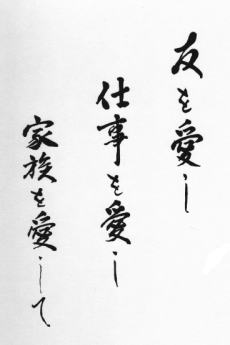 友を愛し
仕事を愛し
家族を愛して